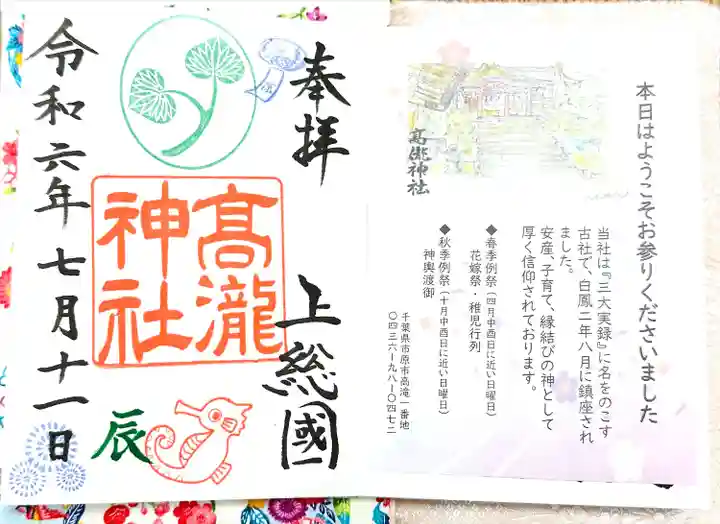 奉拝
上総國
髙瀧
神社
辰
令和六年七月十一日
本日はようこそお参りくださいました
髙瀧神社
当社は『三大実録』に名をのこす
古社で、白鳳二年八月に鎮座され
ました。
安産、子育て、縁結びの神として
厚く信仰されております。
◆春季例祭(四月中酉日に近い日曜日)
花嫁祭・稚児行列
◆秋季例祭(十月中酉日に近い日曜日)
神輿渡御
千葉県市原市高滝一番地
〇四三六ー九八ー〇四七二